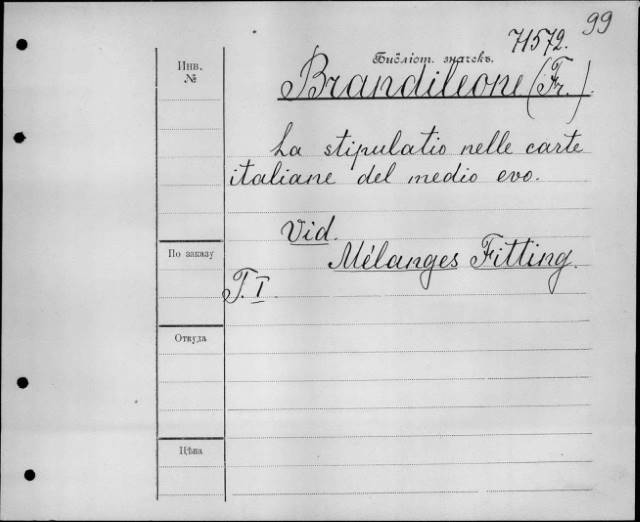 99
71572.
Библіот. значекъ.
Инв.
№
Brandileone (Fr.).
La stipulatio nelle carte
italiane del medio evo.
Vid.
Mélanges Fitting.
По заказу
T. I
Откуда
Цѣна